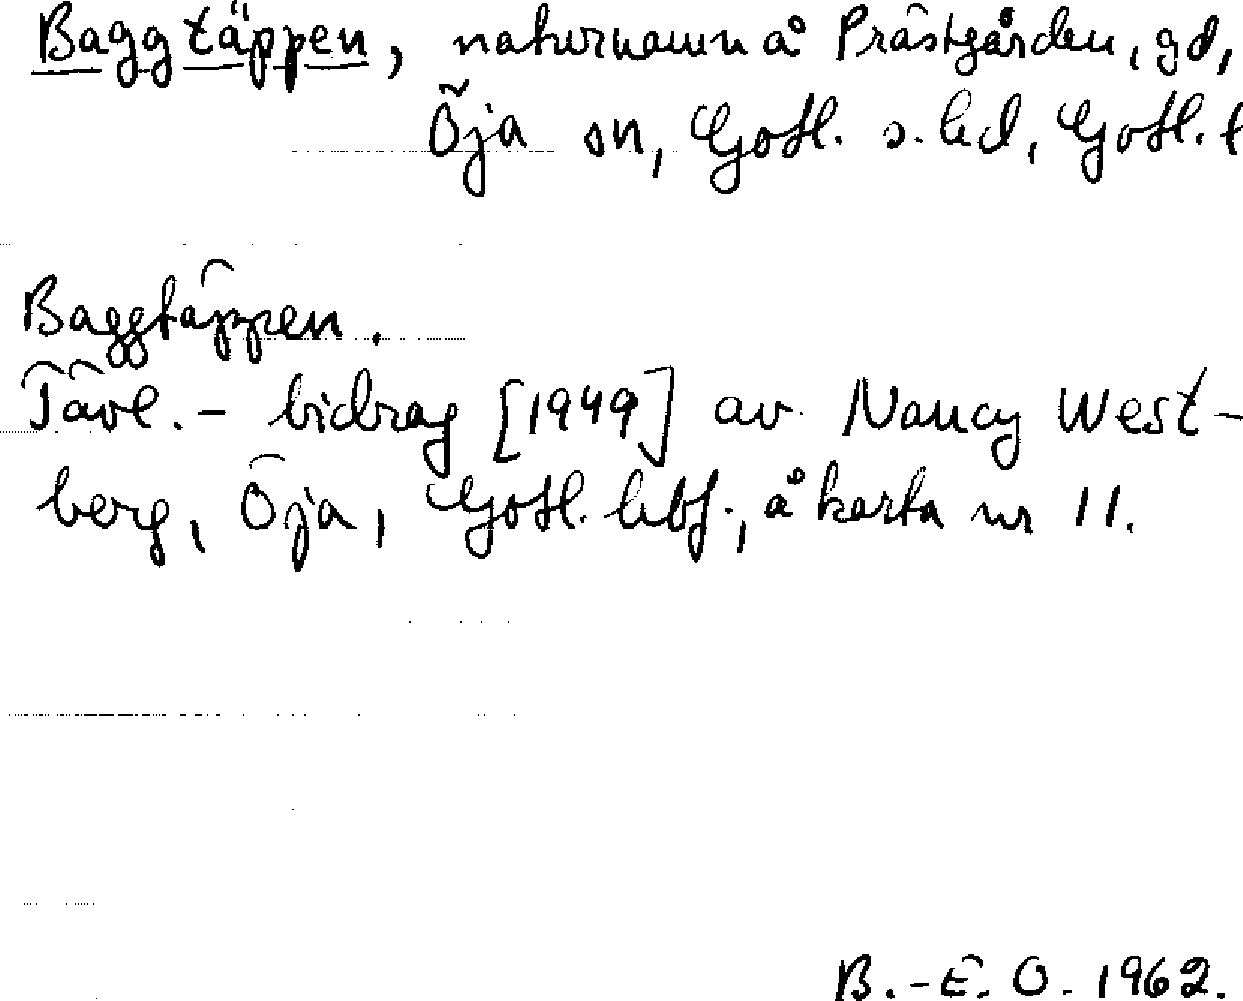 Baggtäppen, naturnamn å Prästgården, gd,
Öja sn, Gotl. s. hd, Gotl. l
Baggtäppen.
Tävl. - bidrag [1949] av Nancy West-
berg, Öja, Gotl. hbf., å karta nr 11.
B.-E. O. 1962.